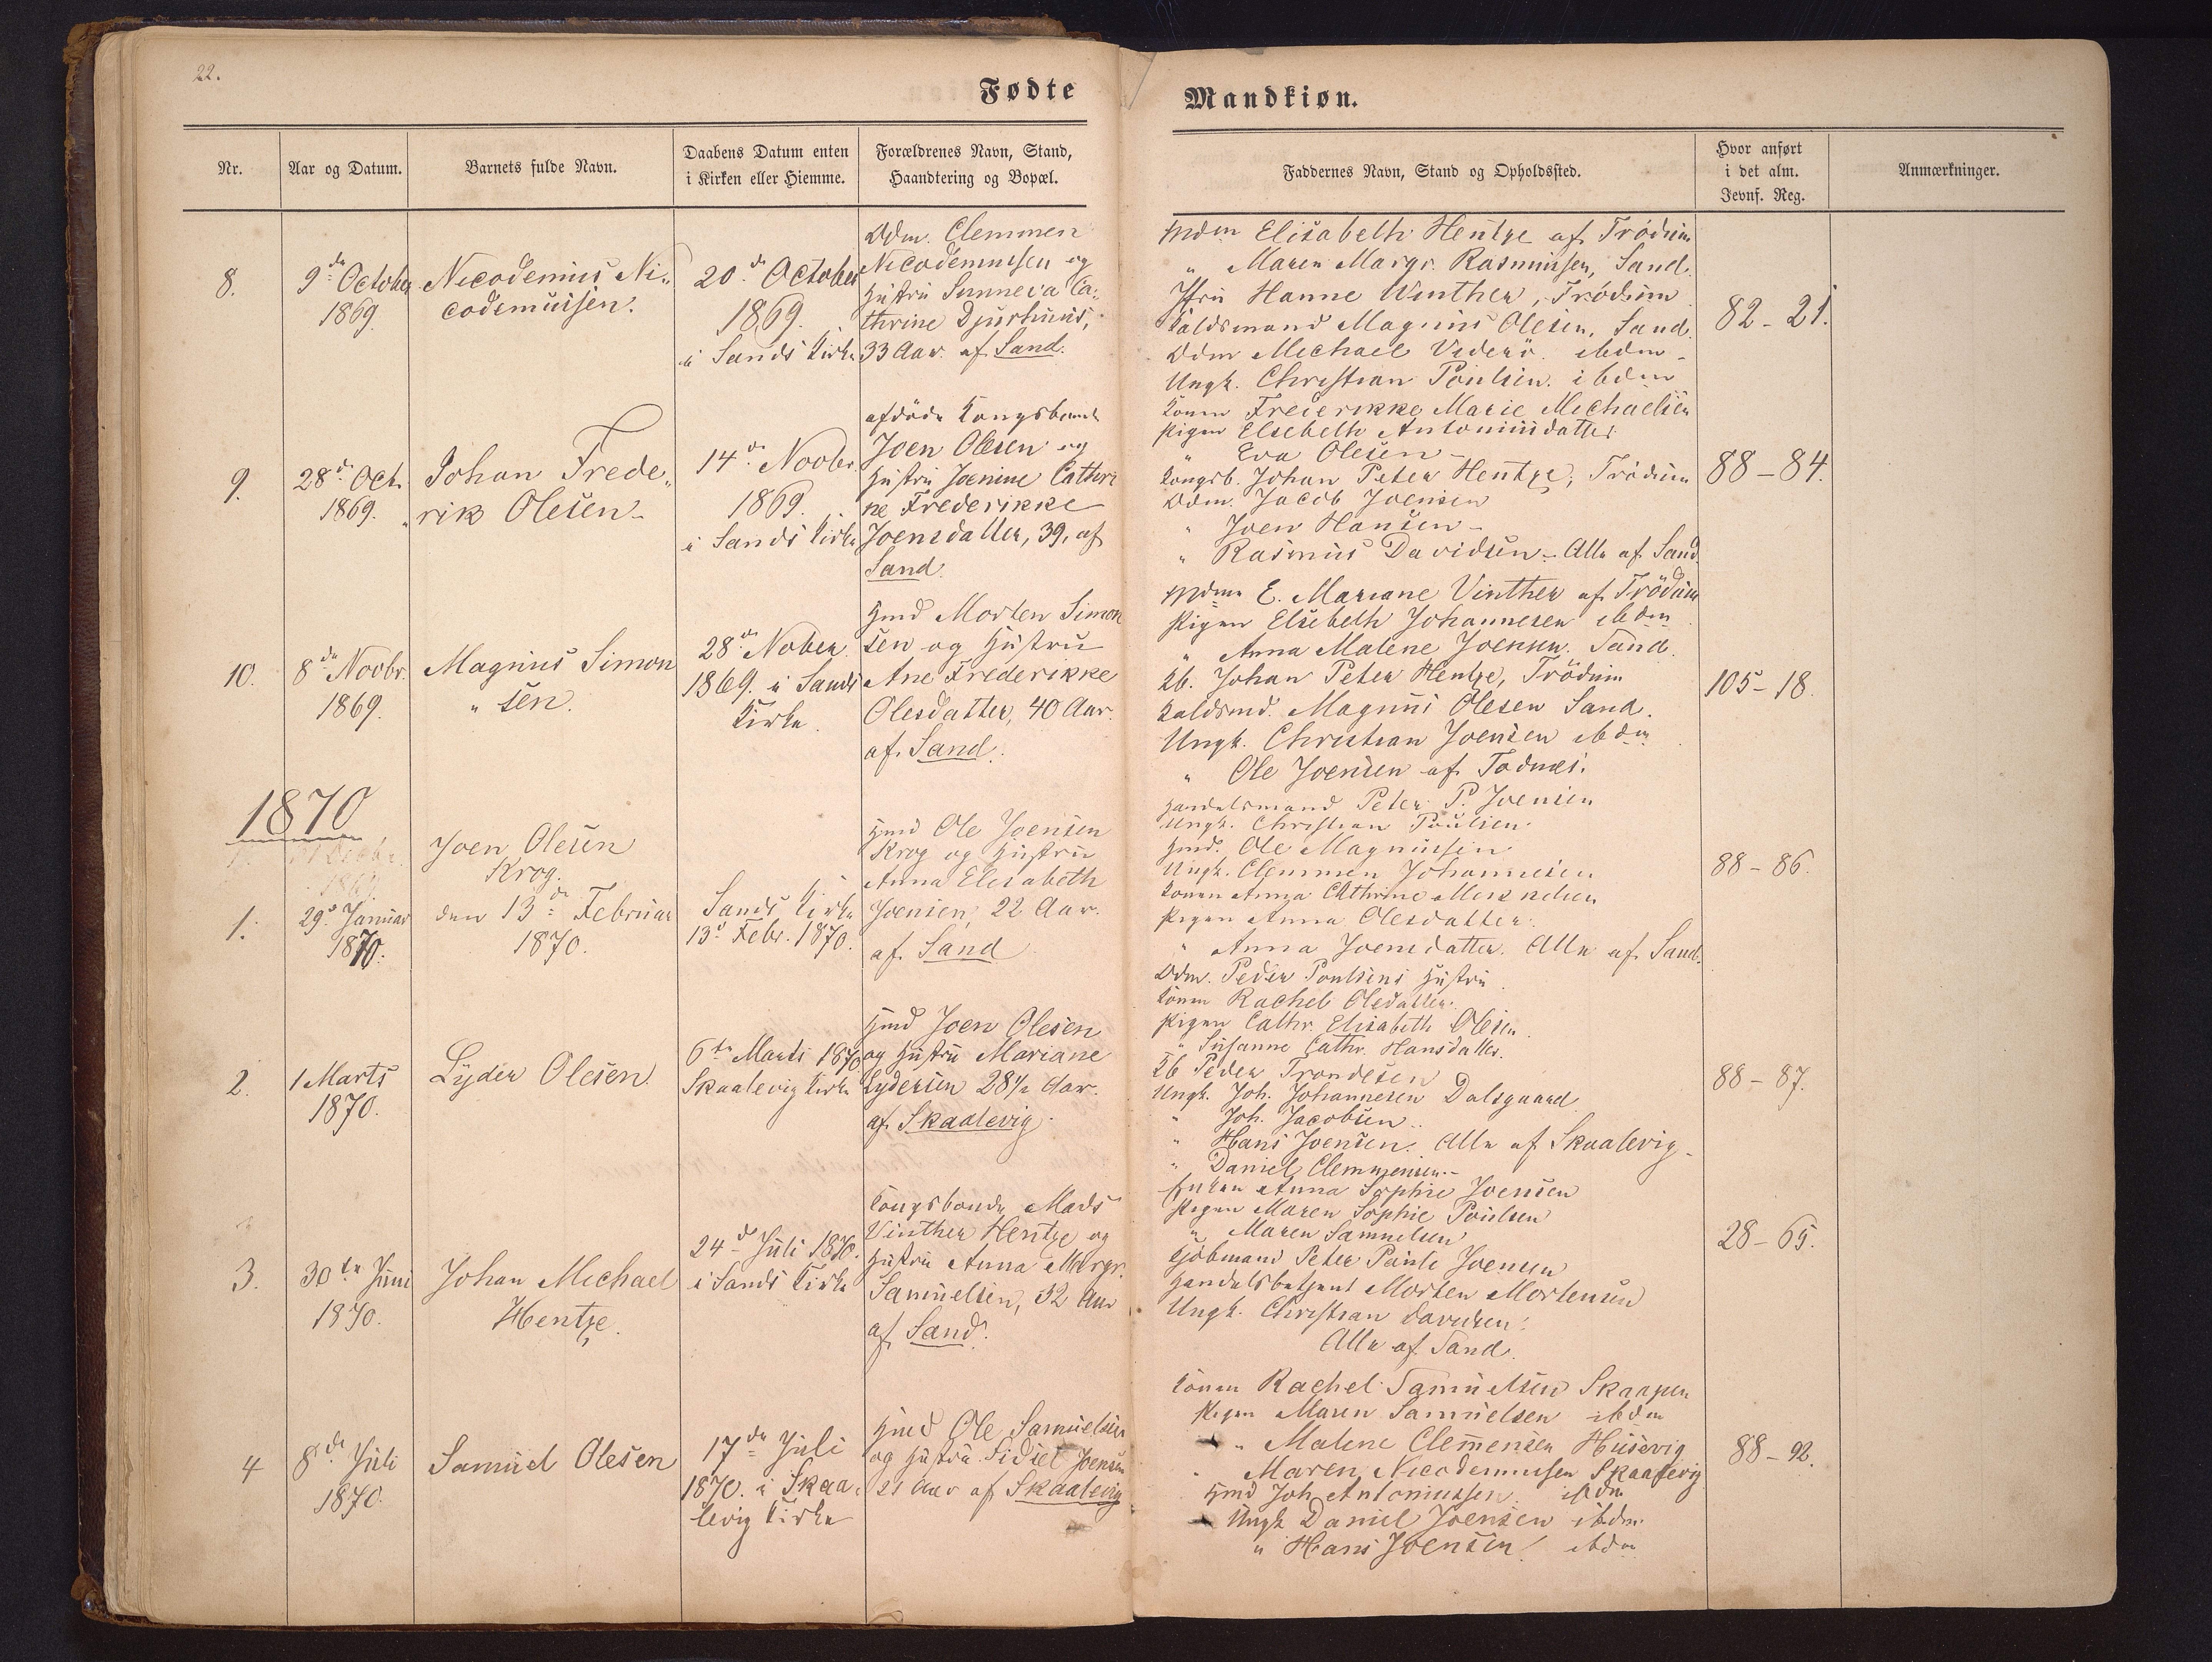 22.
Fødte
Mandkiøn.
Nr.
Aar og Datum.
Barnets fulde Navn.
Daabens Datum enten
i Kirken eller Hiemme.
Forældrenes Navn, Stand,
Haandtering og Bopæl.
Faddernes Navn, Stand og Opholdssted.
Hvor anført
i det alm.
Jevnf. Reg.
Anmærkninger.
8.
9de October
1869.
Nicodemus Ni-
codemussen.
20de October
1869.
i Sands Kirke
Odm. Clemmen
Nicodemussen og
Hustru Sunneva Ca-
thrine Djurhuus,
33 Aar. af Sand.
Mdm Elisabeth Hentze af Trödum
" Maren Margr. Rasmussen, Sand.
Jfru Hanne Winther, Trödum
Kaldsmand Magnus Olesen, Sand.
Odm Michael Viderö. ibdm
Ungk. Christian Poulsen. ibdm
82 - 21.
9.
28de Oct.
1869.
Johan Frede-
"rik Olesen
14de Novbr.
1869.
i Sands Kirke
afdöde Kongsbonde
Joen Olesen og
Hustru Joenine Cathri
ne Frederikke
Joensdatter, 39, af
Sand.
Konen Frederikke Marie Michaelsen
Pigen Elsebeth Antoniusdatter
" Eva Olesen
Kongsb. Johan Peter Hentze, Trödum
Odm. Jacob Joensen
" Joen Hansen
" Rasmus Davidsen - Alle af Sand.
88 - 84.
10.
8de Novbr.
1869.
Magnus Simon
" sen.
28de Nober
1869. i Sands
Kirke.
Hmd Morten Simon
sen og Hustru
Ane Frederikke
Olesdatter, 40 Aar.
af Sand.
Mdme E. Mariane Vinther af Trödum
Pigen Elsebeth Johannesen ibdm
" Anna Malene Joensen. Sand.
Kb. Johan Peter Hentze, Trödum
Kaldsmd. Magnus Olesen Sand.
Ungk. Christian Joensen ibdm
" Ole Joensen af Todnæs.
105 - 18.
1870
1.
29de Januar
1870.
Joen Olesen
Krog.
den 13de Februar
1870.
Sands Kirke
13de Febr. 1870.
Hmd Ole Joensen
Krog og Hustru
Anna Elisabeth
Joensen, 22 Aar.
af Sand
Handelsmand Peter P. Joensen
Ungk. Christian Poulsen.
Hmd. Ole Magnussen
Ungk. Clemmen Johannesen
Konen Anna Cathrine
Pigen Anna Olesdatter.
" Anna Joensdatter. Alle af Sand.
88 - 86.
2.
1 Marts
1870.
Lyder Olesen.
6te Marts 1870
Skaalevig Kirke
Hmd Joen Olesen
og Hustru Mariane
Lydersen 28½ Aar.
af Skaalevig.
Odm. Peder Poulsens Hustru.
Konen Rachel Olsdatter.
Pigen Cathr. Elisabeth Olesen.
" Susanne Cathr. Hansdatter.
Kb Peder Trondesen
Ungk. Joh. Johannesen Dalsgaard
" Joh. Jacobsen
" Hans Joensen. Alle af Skaalevig
" Daniel Clemmensen.
88 - 87.
3.
30te Juni
1870.
Johan Michael
Hentze.
24de Juli 1870.
i Sands Kirke
Kongsbonde Mads
Vinther Hentze og
Hustru Anna Margr.
Samuelsen, 32 Aar
af Sand.
Enken Anna Sophie Joensen
Pigen Maren Sophie Poulsen
" Maren Samuelsen
Kjöbmand Peter Pauli Joensen
Handelsbetjent Morten Mortensen
Ungk. Christian Davidsen.
Alle af Sand.
28 - 65.
4
8de Juli
1870.
Samuel Olesen
17de Juli
1870. i Skaa-
levig Kirke
Hmd Ole Samuelsen
og Hustru Sidsel Joensen
21 Aar af Skaalevig
Konen Rachel Samuelsen Skaapen
Pigen Maren Samuelsen ibdm
" Malene Clemensen Husevig
" Maren Nicodemussen Skaalevig
Hmd Joh. Antoniussen. ibdm
Ungk Daniel Joensen ibdm
" Hans Joensen! ibdm
88 - 92.